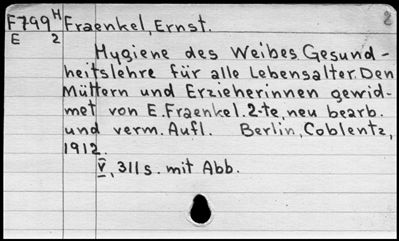 F799 H Fraenkel, Ernst. 2
E 2
Hygiene des Weibes Gesund-
heitslehre für alle Lebensalter. Den
Müttern und Erzieherinnen gewid-
met von E. Fraenkel. 2-te, neu bearb.
und verm. Aufl. Berlin, Coblentz,
1912.
V, 311 s. mit Abb.